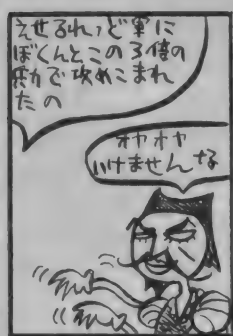 えせるれっど軍に
ぼくんとこの3倍の
兵力で攻めこまれ
たの
オヤオヤ
いけませんな